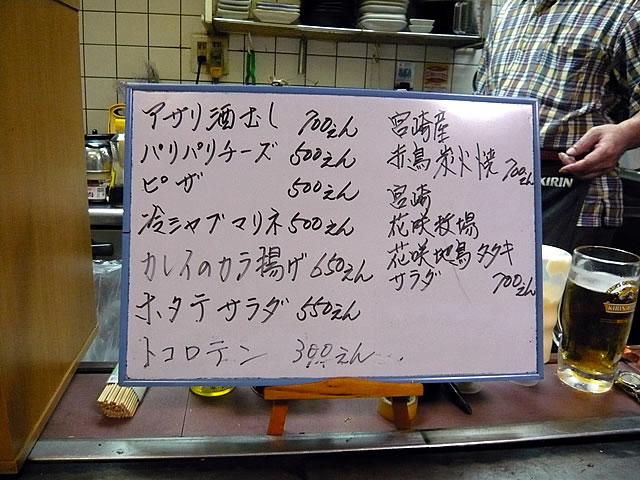 アサリ酒むし 700えん
パリパリチーズ 500えん
ピザ 500えん
冷シャブマリネ 500えん
カレイのカラ揚げ 650えん
ホタテサラダ 550えん
トコロテン 300えん
宮崎産
赤鳥炭火焼 700えん
宮崎
花咲牧場
花咲地鳥タタキ
サラダ 700えん
KIRIN
KIRIN